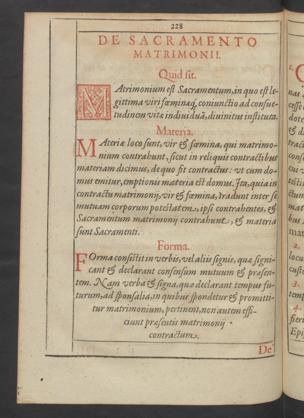 228
DE SACRAMENTO
MATRIMONII.
Quid sit.
MAtrimonium est Sacramentum, in quo est le-
gittima viri fœminæq; coniunctio ad consue-
tudinem vitæ indiuiduā, diuinitus instituta.
Materia.
MAteriæ loco sunt, vir & fœmina, qui matrimo-
nium contrahunt, sicut in reliquis contractibus
materiam dicimus, de quo fit contractus: vt cum do-
mus emitur, emptionis materia est domus. Ita, quia in
contractu matrimonij, vir & fœmina, tradunt inter se
mutuam corporum potestatem, ipsi contrahentes, &
Sacramentum matrimonij contrahunt, & materia
sunt Sacramenti.
Forma.
FOrma consistit in verbis, vel aliis signis, quæ signi-
cant & declarant consensum mutuum & præsen-
tem. Nam verba & signa, quæ declarant tempus fu-
turum, ad sponsalia, in quibus spondetur & promitti-
tur matrimonium, pertinent, non autem effi-
ciunt præsentis matrimonij
contractum.
De